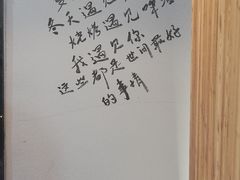 冬天遇见
烧烤遇见啤酒
我遇见你
这些都是世间最好
的事情